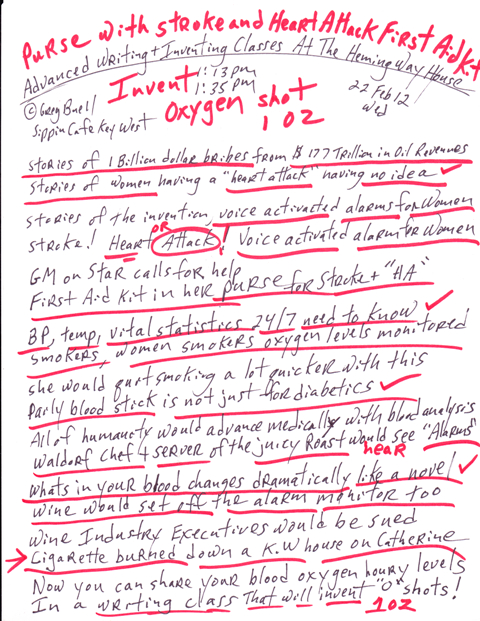 Purse with stroke and Heart Attack First Aid Kit
Advanced Writing + Inventing Classes At The Hemingway House
Invent 1:13 pm
1:35 pm
22 Feb 12
Wed
© Greg Buell
Sippin Cafe Key West
Oxygen shot
1 OZ
stories of 1 Billion dollar bribes from $ 177 Trillion in Oil Revenues
stories of women having a "heart attack" having no idea ✓
stories of the invention, voice activated alarms for women
stroke! Heart OR Attack! Voice activated alarm for women
GM on Star calls for help
First Aid Kit in her purse for Stroke + "HA"
BP, temp, vital statistics 24/7 need to know ✓
smokers, women smokers oxygen levels monitored
she would quit smoking a lot quicker with this
Daily blood stick is not just for diabetics ✓
All of humanity would advance medically with blood analysis
Waldorf Chef + server of the juicy Roast would see "Alarms"
hear
whats in your blood changes dramatically like a novel ✓
wine would set off the alarm monitor too
Wine Industry Executives would be sued
→ Cigarette burned down a K.W house on Catherine
Now you can share your blood oxygen houry levels
In a writing class That will invent "O" shots!
1 OZ